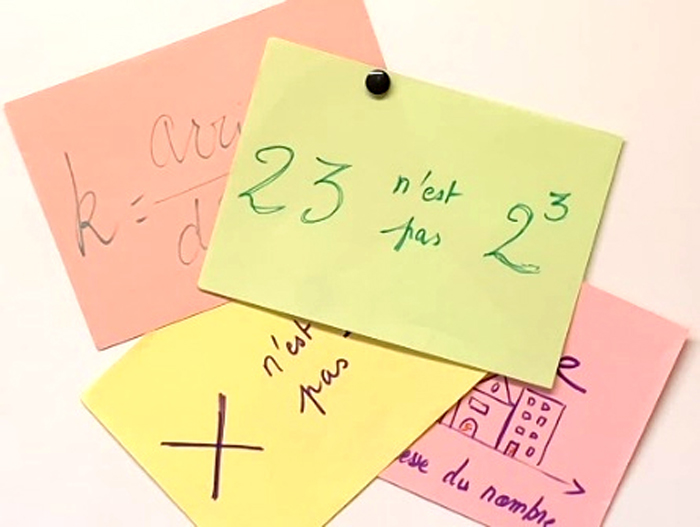 k = arri
23 n'est pas 2³
n'est
pas
+
du nombre